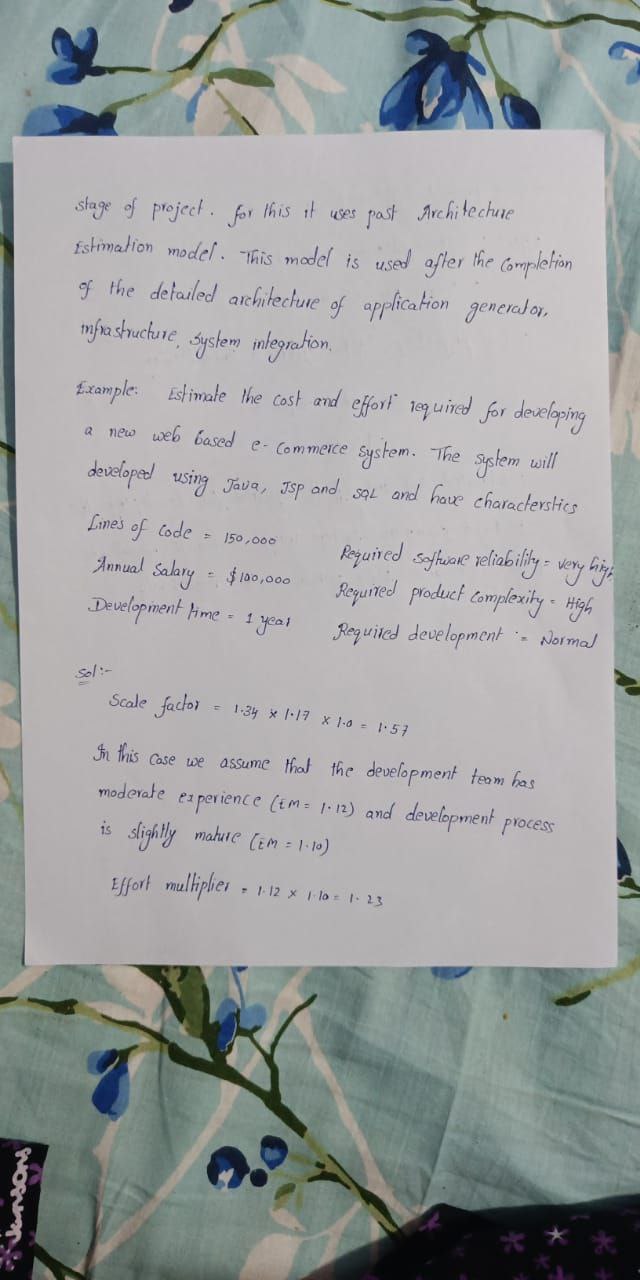 stage of project. for this it uses past Architecture
Estimation model. This model is used after the Completion
of the detailed architecture of application generator,
infrastructure, system integration.
Example: Estimate the cost and effort required for developing
a new web based e-Commerce system. The system will
developed using Java, Jsp and SQL and have characterstics
Lines of code = 150,000
Required software reliability = very high
Annual Salary = $100,000
Required product complexity = High
Development time = 1 year
Required development := Normal
Sol:-
Scale factor = 1.34 x 1.17 x 1.0 = 1.57
In this case we assume that the development team has
moderate experience (EM = 1.12) and development process
is slightly mature (EM = 1.10)
Effort multiplier = 1.12 x 1.10 = 1.23
Jansons